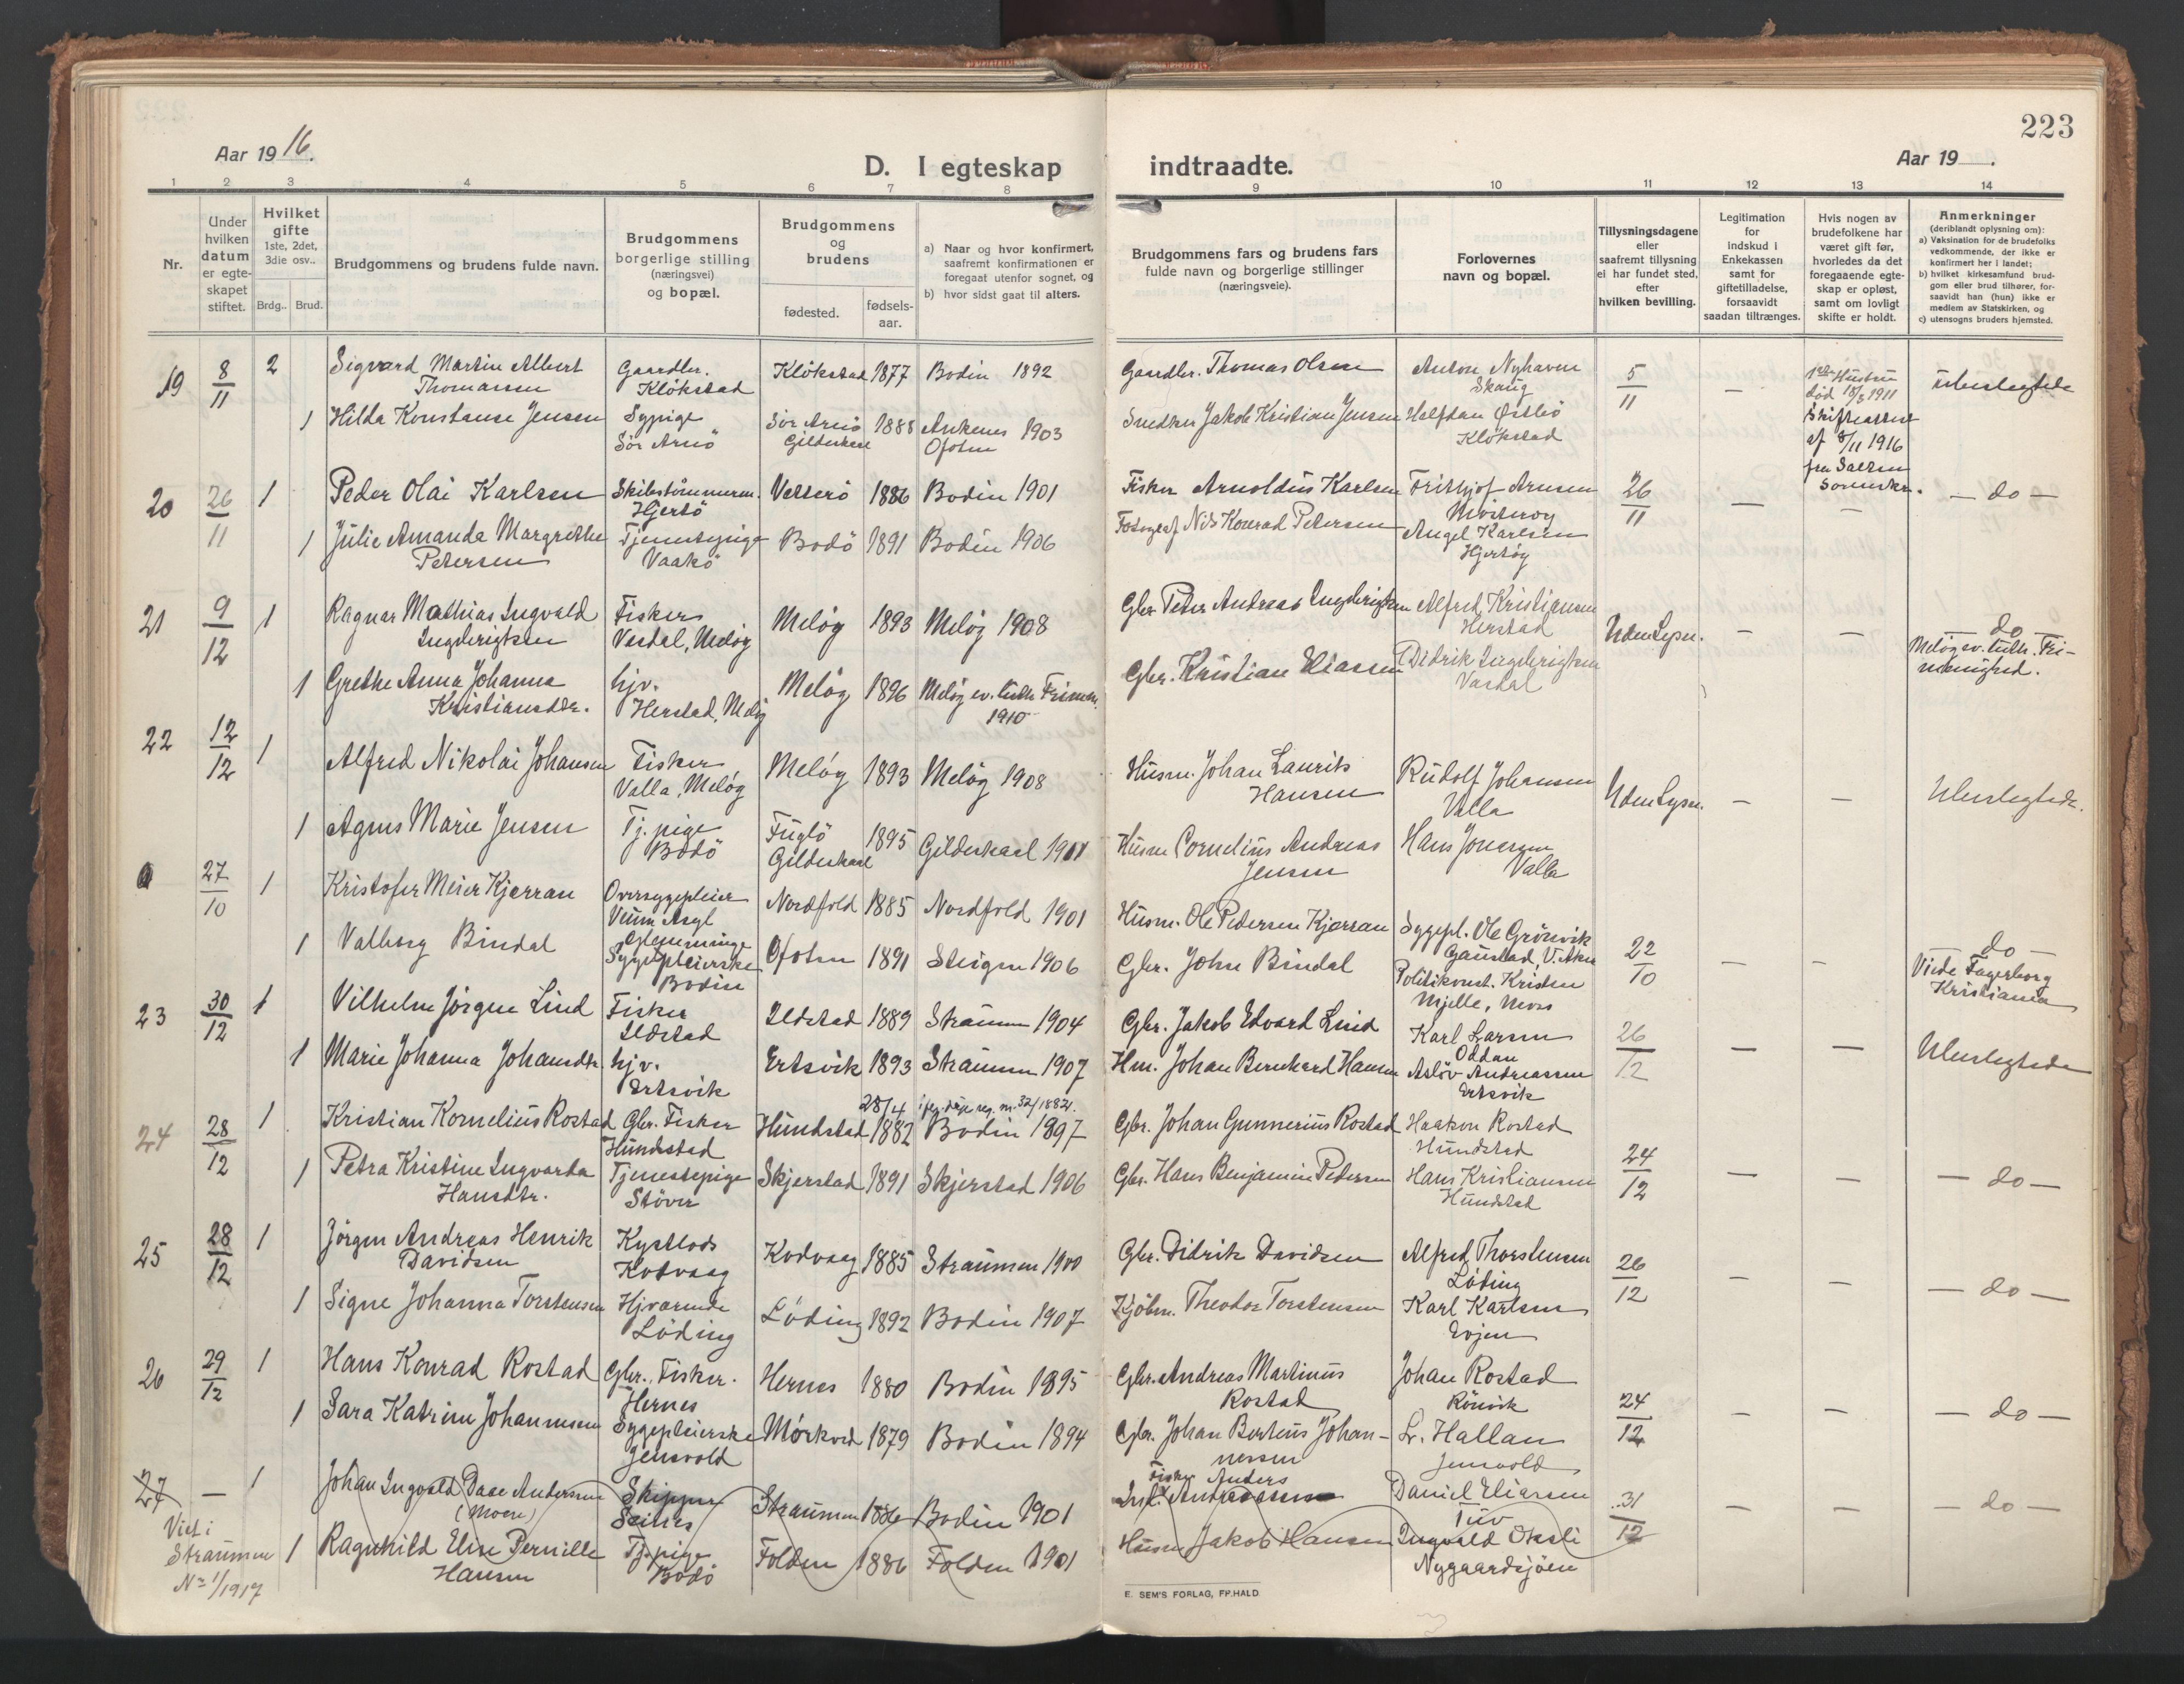 223
Aar 1916.
D. I egteskap indtraadte.
Aar 19 .
1 2 3 4 5 6 7 8 9 10 11 12 13 14
Nr.
Under hvilken datum er egte-skapet stiftet.
Hvilket gifte 1ste, 2det, 3die osv..
Brdg.. Brud.
Brudgommens og brudens fulde navn.
Brudgommens borgerlige stilling (næringsvei) og bopæl.
Brudgommens og brudens
fødested.
fødsels-aar.
a) Naar og hvor konfirmert, saafremt konfirmationen er foregaat utenfor sognet, og
b) hvor sidst gaat til alters.
Brudgommens fars og brudens fars fulde navn og borgerlige stillinger (næringsveie).
Forlovernes navn og bopæl.
Tillysningsdagene eller saafremt tillysning ei har fundet sted, efter hvilken bevilling.
Legitimation for indskud i Enkekassen samt for giftetilladelse, forsaavidt saadan tiltrænges.
Hvis nogen av brudefolkene har været gift før, hvorledes da det foregaaende egte-skap er opløst, samt om lovligt skifte er holdt.
Anmerkninger (deriblandt oplysning om):
a) Vaksination for de brudefolks vedkommende, der ikke er konfirmert her i landet;
b) hvilket kirkesamfund brud-gom eller brud tilhører, for-saavidt han (hun) ikke er medlem av Statskirken, og
c) utensogns bruders hjemsted.
19 8/11 2 Sigvard Martin Albert Thomassen Gaardbr. Klökstad Klökstad 1877 Bodin 1892 Gaardbr. Thomas Olsen Anton Nyhavn Skaug 5/11 — 1ste Hustru død 18/3 1911 Skifteattest af 8/11 1916 fra Salten Sorenskr. Ubeslegtede
1 Hilda Konstanse Jensen Sypige Sör Arnö Sör Arnö Gildeskaal 1888 Ankenes Ofoten 1903 Snedker Jakob Kristian Jensen Halfdan Östbö Klökstad
20 26/11 1 Peder Olai Karlsen Skibstömmerm. Hjertö Vetterö 1886 Bodin 1901 Fisker Arnoldus Karlsen Frithjof Arnsen 26/11 — — — do —
1 Julie Amanda Margrethe Petersen Tjenestepige Vaakö Bodö 1891 Bodin 1906 Fotograf Nils Konrad Petersen Angel Karlsen Hjertøy
21 9/12 1 Ragnar Mathias Ingvald Ingebrigtsen Fisker Vasdal, Meløy Meløy 1893 Meløy 1908 Gbr. Peter Andreas Ingebrigtsen Alfred Kristiansen Herstad Uden Lysn. — — — do — Meløy ev. luth. Fri-menighed.
1 Grethe Anna Johanna Kristiansdtr. hjv. Herstad, Meløy Meløy 1896 Meløy ev. luth Frimen. 1910 Gbr. Kristian Eliassen Didrik Ingebrigtsen Vasdal
22 12/12 1 Alfred Nikolai Johansen Fisker Valla, Meløy Meløy 1893 Meløy 1908 Husm. Johan Laurits Hansen Rudolf Johansen Valla Uden Lysn. — — Ubeslegtede.
1 Agnes Marie Jensen Tj. pige Bodö Fuglö Gildeskaal 1895 Gildeskaal Husm Cornelius Andreas Jensen Hans Valla
27/10 1 Kristofer Meier Kjerran Oversygepleier Veum Asyl Glemminge Nordfold 1885 Nordfold 1901 Husm. Ole Pedersen Kjerran Sygepl. Ole Grönvik Gaustad, V. Aker 22/10 — — — do — Viede Fagerborg Kristiania
1 Valborg Bindal Sygepleierske Bodin Ofoten 1891 Steigen 1906 Gbr. John Bindal Politikonst. Kristen Mjelle, Moss
23 30/12 1 Vilhelm Jörgen Lind Fisker Ildstad Ildstad 1889 Straumen 1904 Gbr. Jakob Edvard Lind Karl Larsen Oddan 26/12 — — Ubeslegtede
1 Marie Johanna Johansdtr. hjv. Ertsvik Ertsvik 1893 Straumen 1907 Hm. Johan Bernhard Hansen Aslöv Andreassen Ertsvik
24 28/12 1 Kristian Kornelius Rostad Gbr. Fisker Hundstad Hundstad 28/4 1882 Bodin 1897 Gbr. Johan Gunnerius Rostad Haakon Rostad Hundstad 24/12 — — — do —
1 Petra Kristine Ingvarda Hansdtr. Tjenestepige Stöver Skjerstad 1891 Skjerstad 1906 Gbr. Hans Benjamin Pedersen Hans Kristiansen Hundstad
25 28/12 1 Jörgen Andreas Henrik Davidsen Kystlods Kodvaag Kodvaag 1885 Straumen 1900 Gbr. Didrik Davidsen Alfred Thorstensen Löding 26/12 — — — do —
1 Signe Johanna Torstensen Hjvarende Löding Löding 1892 Bodin 1907 Kjöbm. Theodor Torstensen Karl Karlsen Evjen
26 29/12 1 Hans Konrad Rostad Gbr. Fisker. Hernes Hernes 1880 Bodin 1895 Gbr. Andreas Martinus Rostad Johan Rostad Rönvik 24/12 — — — do —
1 Sara Katrine Johannesen Sygepleierske Jensvold Mørkved 1879 Bodin 1894 Gbr. Johan Berteus Johan-nessen Lr. Hallan Jensvold
27 — 1 Johan Ingvald Daae Andersen (Moen) Skipper Seines Straumen 1886 Bodin 1901 Fisker Anders Andreassen Daniel Eliassen Tuv 31/12 — — — do —
Viet i Straumen No 1/1917
1 Ragnhild Elise Pernille Hansen Tj. pige Bodö Folden 1886 Folden 1901 Husm Jakob Hansen Ingvald Oksli Nygaardsjöen
E. SEM'S FORLAG, FR.HALD